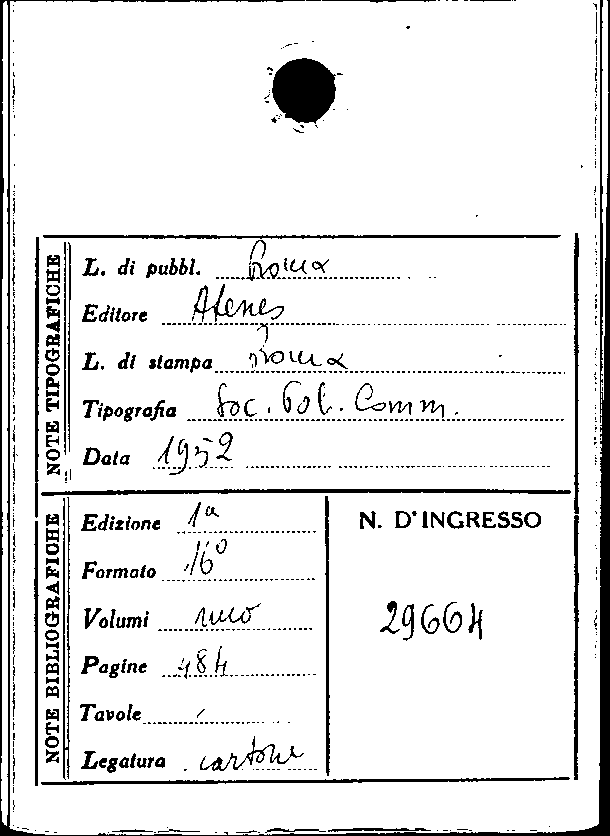 NOTE TIPOGRAFICHE
L. di pubbl. Roma
Editore Atenes
L. di stampa Roma
Tipografia Soc. Pol. Comm.
Data 1952
NOTE BIBLIOGRAFICHE
Edizione 1a
Formato 16°
Volumi uno
Pagine 484
Tavole /
Legatura cartone
N. D'INGRESSO
29664